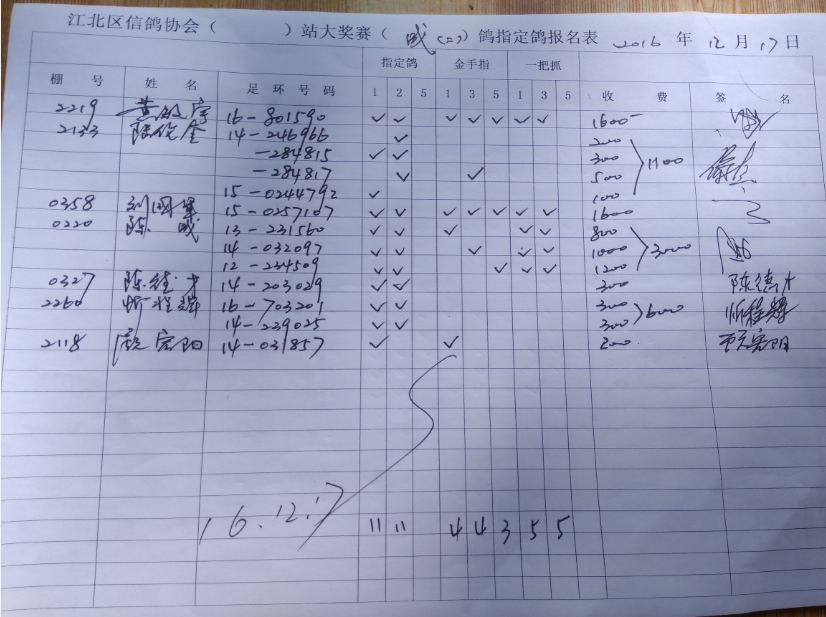 江北区信鸽协会（ ）站大奖赛（ 成(二) ）鸽指定鸽报名表 2016 年 12 月 17 日
棚 号 姓 名 足 环 号 码 指定鸽 金手指 一把抓 收 费 签 名
1 2 5 1 3 5 1 3 5
2219 16-801590 ✓ ✓ ✓ ✓ ✓ ✓ ✓ 1600-
2133 14-246966 ✓ 200
-284815 ✓ ✓ 300 1100
-284817 ✓ ✓ 500
15-0244792 ✓ 100
0358 15-0257107 ✓ ✓ ✓ ✓ ✓ ✓ ✓ 1600
0220 陈 成 13-231560 ✓ ✓ ✓ ✓ ✓ 800
14-032097 ✓ ✓ ✓ ✓ ✓ 1000 3000
12-234509 ✓ ✓ ✓ ✓ ✓ 1200
0327 陈德才 14-203029 ✓ ✓ 300 陈德才
2260 忻程辉 16-703201 ✓ ✓ 300 600 忻程辉
14-229025 ✓ ✓ 300
2118 顾宏阳 14-031857 ✓ ✓ 200 顾宏阳
16.12.17
11 11 4 4 3 5 5